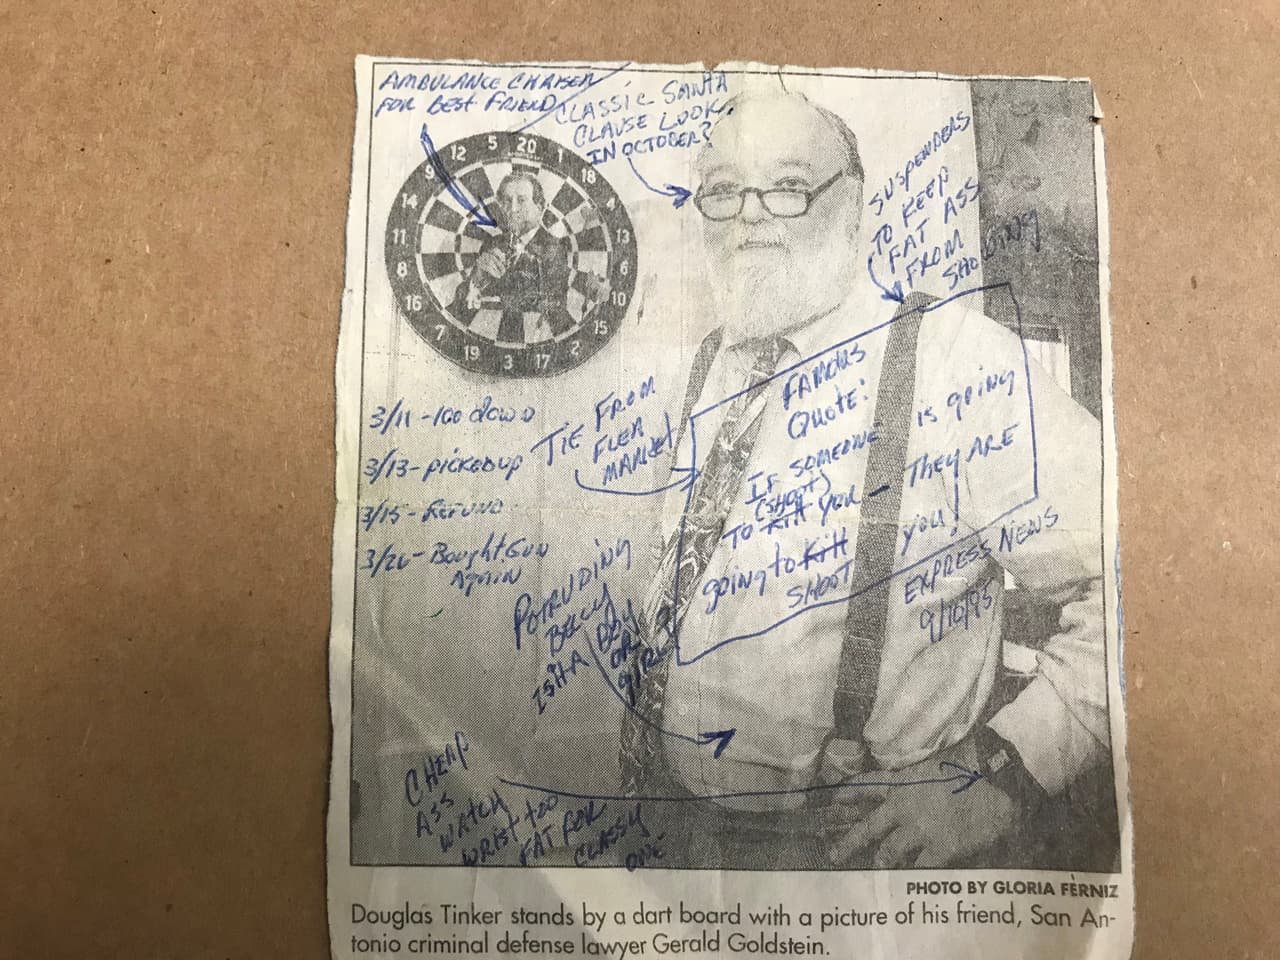 AMBULANCE CHAISER
FOR BEST FRIEND
CLASSIC SANTA
CLAUSE LOOK
IN OCTOBER?
SUSPENDERS
TO KEEP
FAT ASS
FROM
SHOWING
5 20 1 18 4 13 6 10 15 2 17 3 19 7 16 8 11 14 9 12
3/11 - 100 down
3/13 - picked up
3/15 - REFUND
3/26 - Bought Gun
Again
TIE FROM
FLEA
MARKET
FAMOUS
QUOTE:
IF SOMEONE is going
(SHOOT)
TO Kill you - They ARE
going to Kill you!
SHOOT
EXPRESS NEWS
9/10/95
POTRUDING
BELLY
IS IT A BOY
OR
GIRL?
CHEAP
ASS
WATCH
WRIST TOO
FAT FOR
CLASSY
ONE
PHOTO BY GLORIA FERNIZ
Douglas Tinker stands by a dart board with a picture of his friend, San An-
tonio criminal defense lawyer Gerald Goldstein.